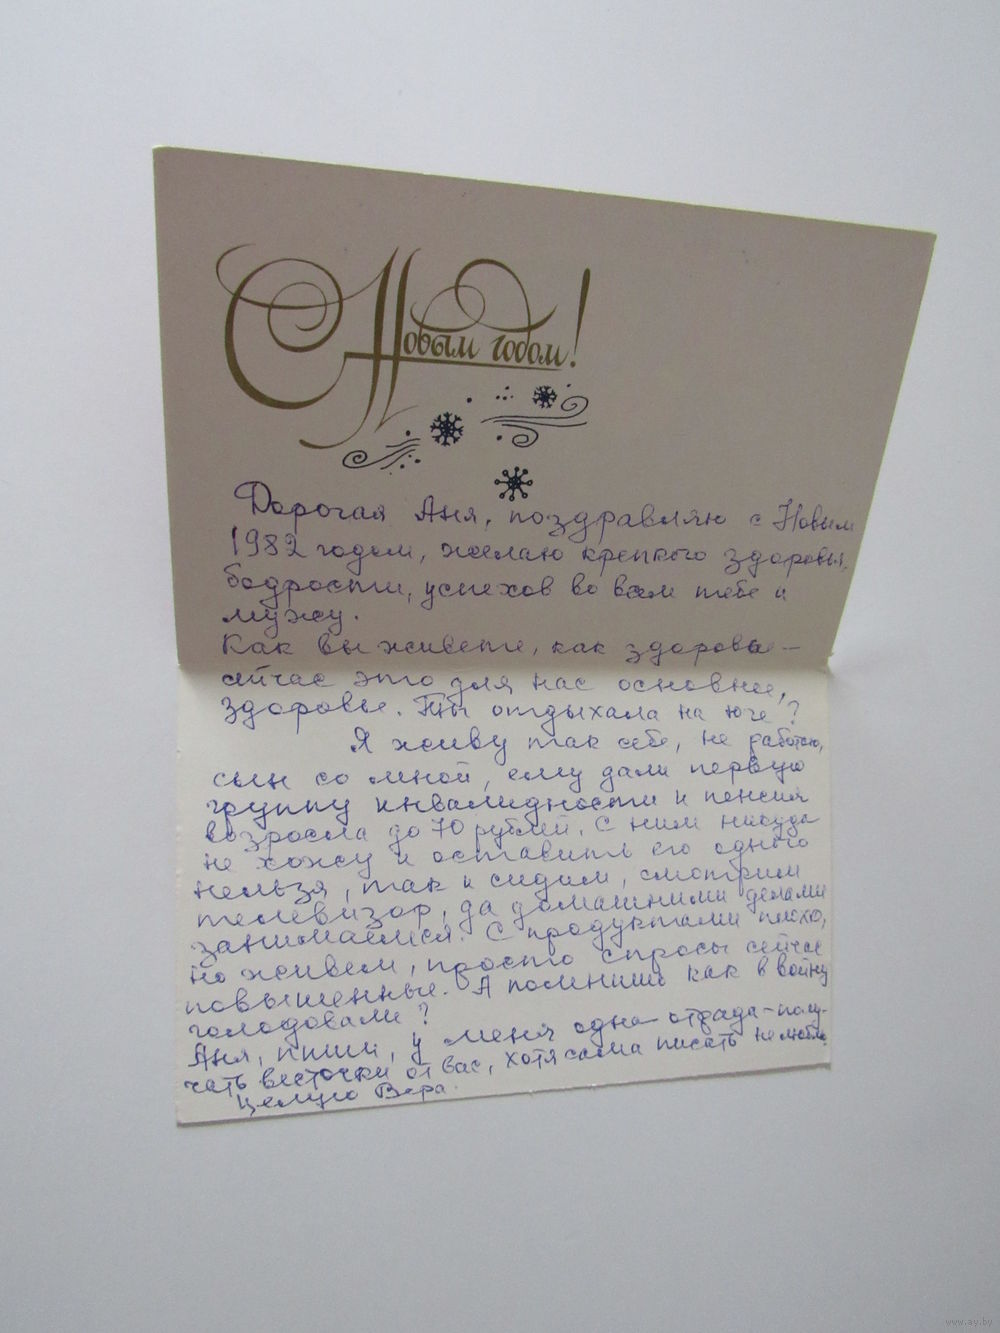 С Новым годом!
Дорогая Аня, поздравляю с Новым
1982 годом, желаю крепкого здоровья,
бодрости, успехов во всем тебе и
мужу.
Как вы живете, как здоровье —
сейчас это для нас основное,
здоровье. Ты отдыхала на юге?
Я живу так себе, не работаю,
сын со мной, ему дали первую
группу инвалидности и пенсия
возросла до 70 рублей. С ним никуда
не хожу и оставить его одного
нельзя, так и сидим, смотрим
телевизор, да домашними делами
занимаемся. С продуктами плохо,
но живем, просто спросы сейчас
повышенные. А помнишь как в войну
голодовали?
Аня, пиши, у меня одна отрада – полу-
чать весточки от вас, хотя сама писать не люблю.
Целую Вера.
www.ay.by